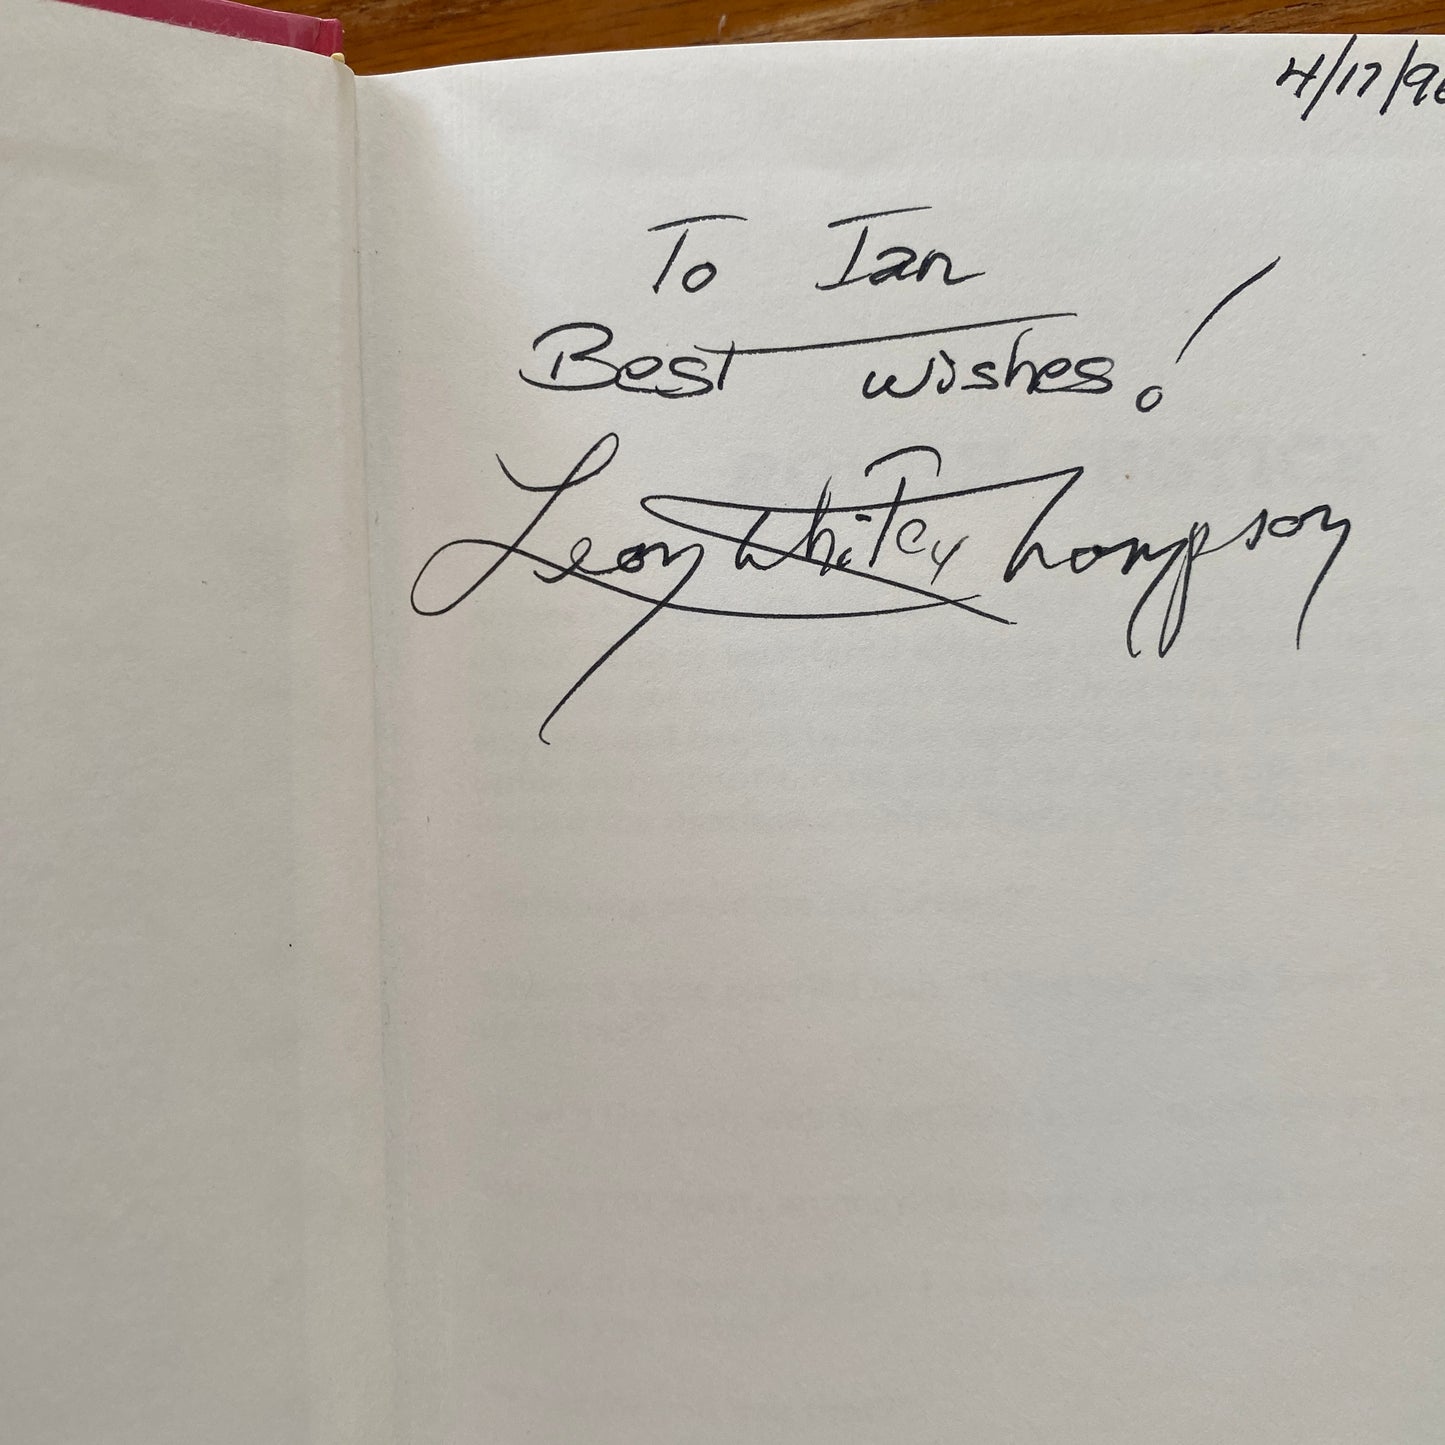 4/17/96
To Ian
Best wishes!
Leon Whitey Thompson